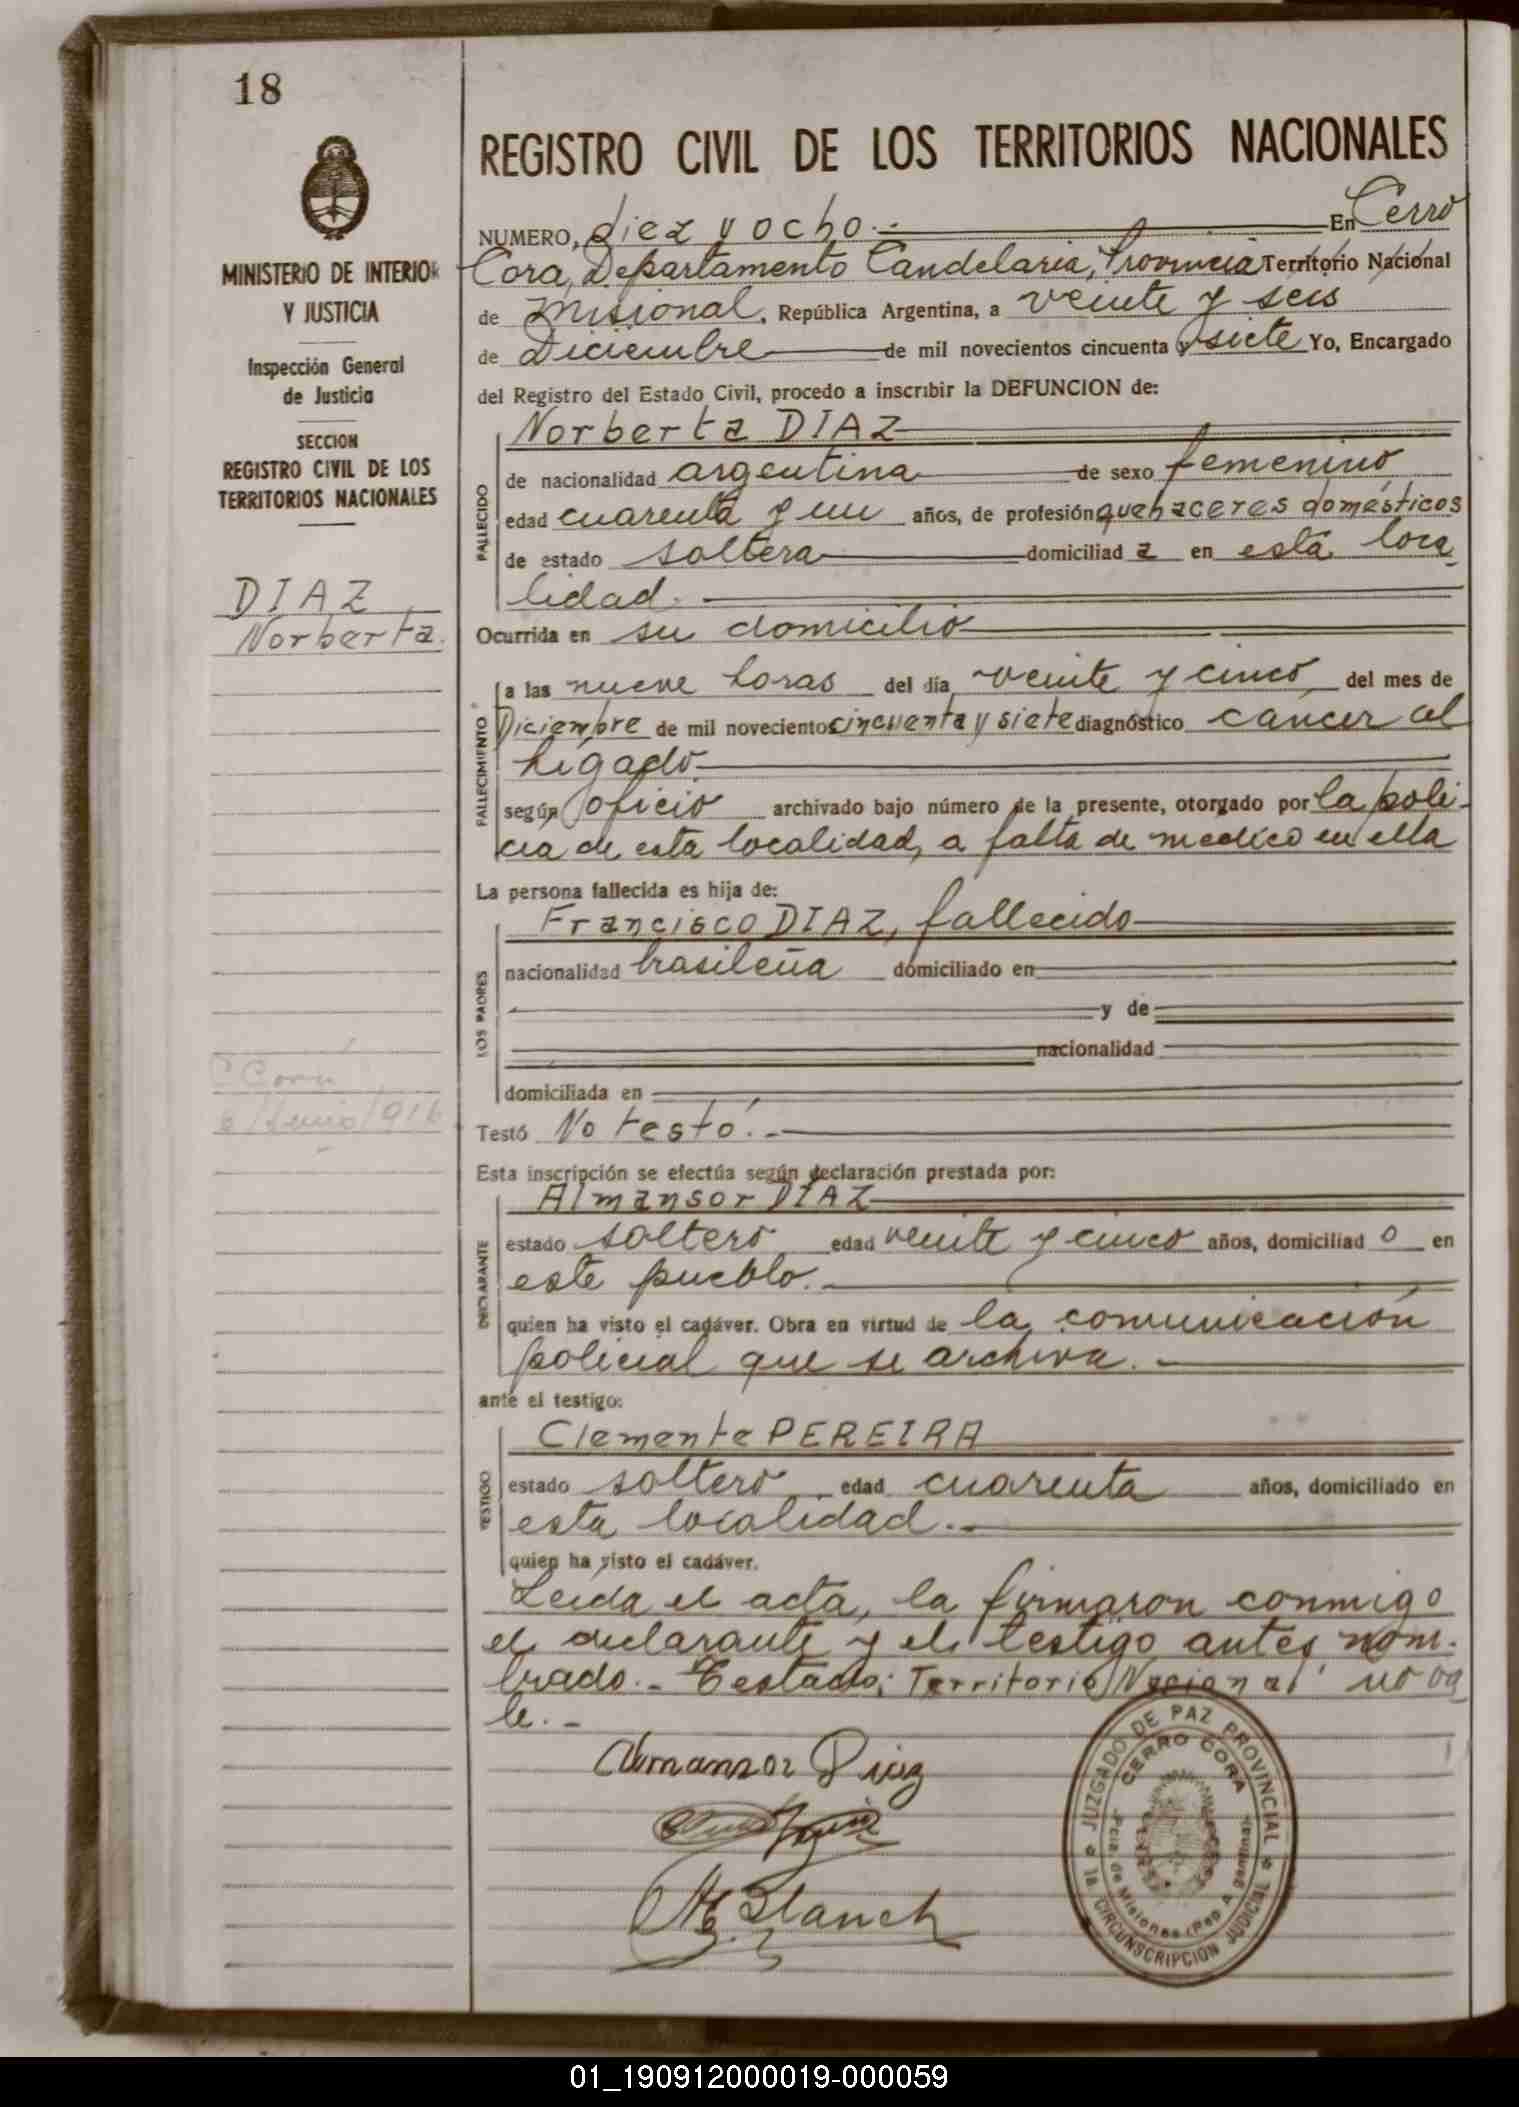 18
MINISTERIO DE INTERIOR
Y JUSTICIA
Inspección General
de Justicia
SECCION
REGISTRO CIVIL DE LOS
TERRITORIOS NACIONALES
DIAZ
Norberta.
REGISTRO CIVIL DE LOS TERRITORIOS NACIONALES
NUMERO, diez y ocho.- En Cerro
Cora, Departamento Candelaria, Provincia Territorio Nacional
de Misional, República Argentina, a veinte y seis
de Diciembre de mil novecientos cincuenta y siete Yo, Encargado
del Registro del Estado Civil, procedo a inscribir la DEFUNCION de:
Norberta DIAZ
FALLECIDO
de nacionalidad argentina de sexo femenino
edad cuarenta y un años, de profesión quehaceres domésticos
de estado soltera domiciliad a en esta loca
lidad.
Ocurrida en su domicilio
FALLECIMIENTO
a las nueve horas del día veinte y cinco del mes de
Diciembre de mil novecientos cincuenta y siete diagnóstico cáncer al
hígado.
según oficio archivado bajo número de la presente, otorgado por la poli-
cia de esta localidad, a falta de medico en ella
La persona fallecida es hija de:
Francisco DIAZ, fallecido
LOS PADRES
nacionalidad brasileña domiciliado en
y de
nacionalidad
domiciliada en
Testó No testó.-
Esta inscripción se efectúa según declaración prestada por:
Almansor DIAZ
DECLARANTE
estado soltero edad veinte y cinco años, domiciliad o en
este pueblo.
quien ha visto el cadáver. Obra en virtud de la comunicación
policial que se archiva.-
ante el testigo:
Clemente PEREIRA
TESTIGO
estado soltero edad cuarenta años, domiciliado en
esta localidad.-
quien ha visto el cadáver.
Leida el acta, la firmaron conmigo
el declarante y el testigo antes nom-
brado.- Testado: Territorio Nacional no va
le.-
Almansor Diaz
Blanch
JUZGADO DE PAZ PROVINCIAL
CERRO CORA
Pcia. de Misiones (Rep. Argentina)
1a. CIRCUNSCRIPCION JUDICIAL
01_190912000019-000059